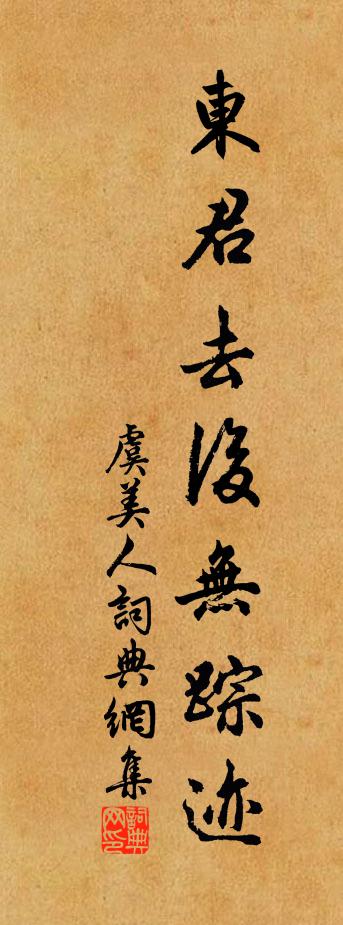 東君去後無踪迹
虞美人詞典網集
詞典网印